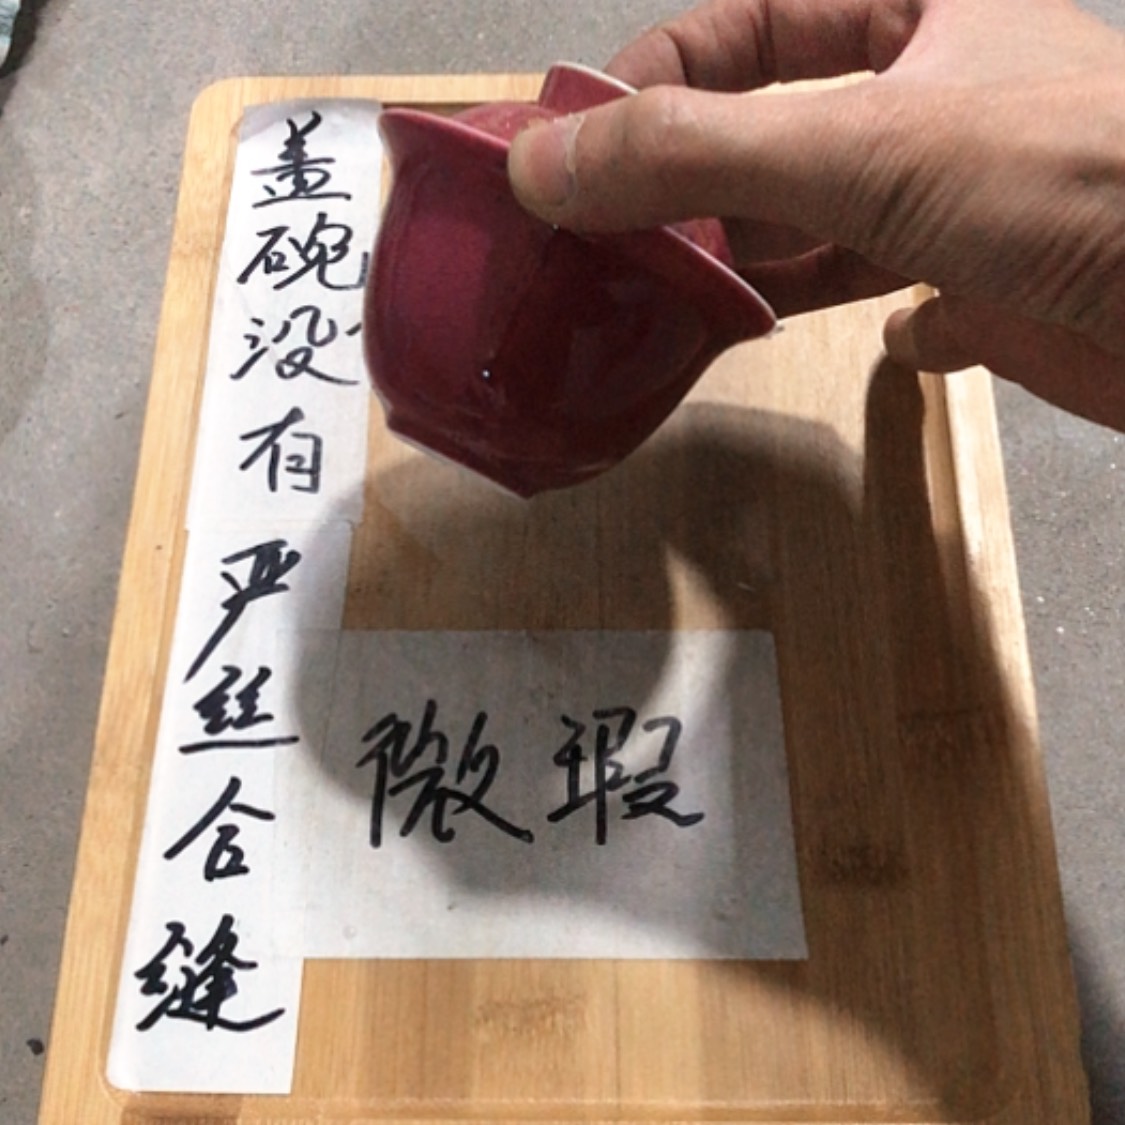 盖碗没有严丝合缝
微瑕